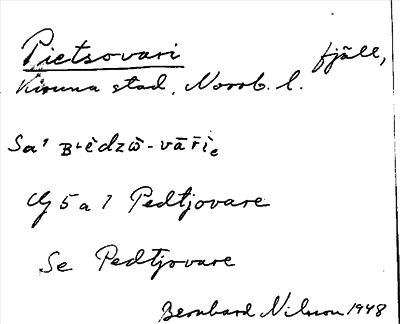 Pietsovari fjäll,
Kiruna stad, Norrb. l.
Sa'
G 5 a 1 Pedtjovare
Se Pedtjovare
Bernhard Nilsson 1948